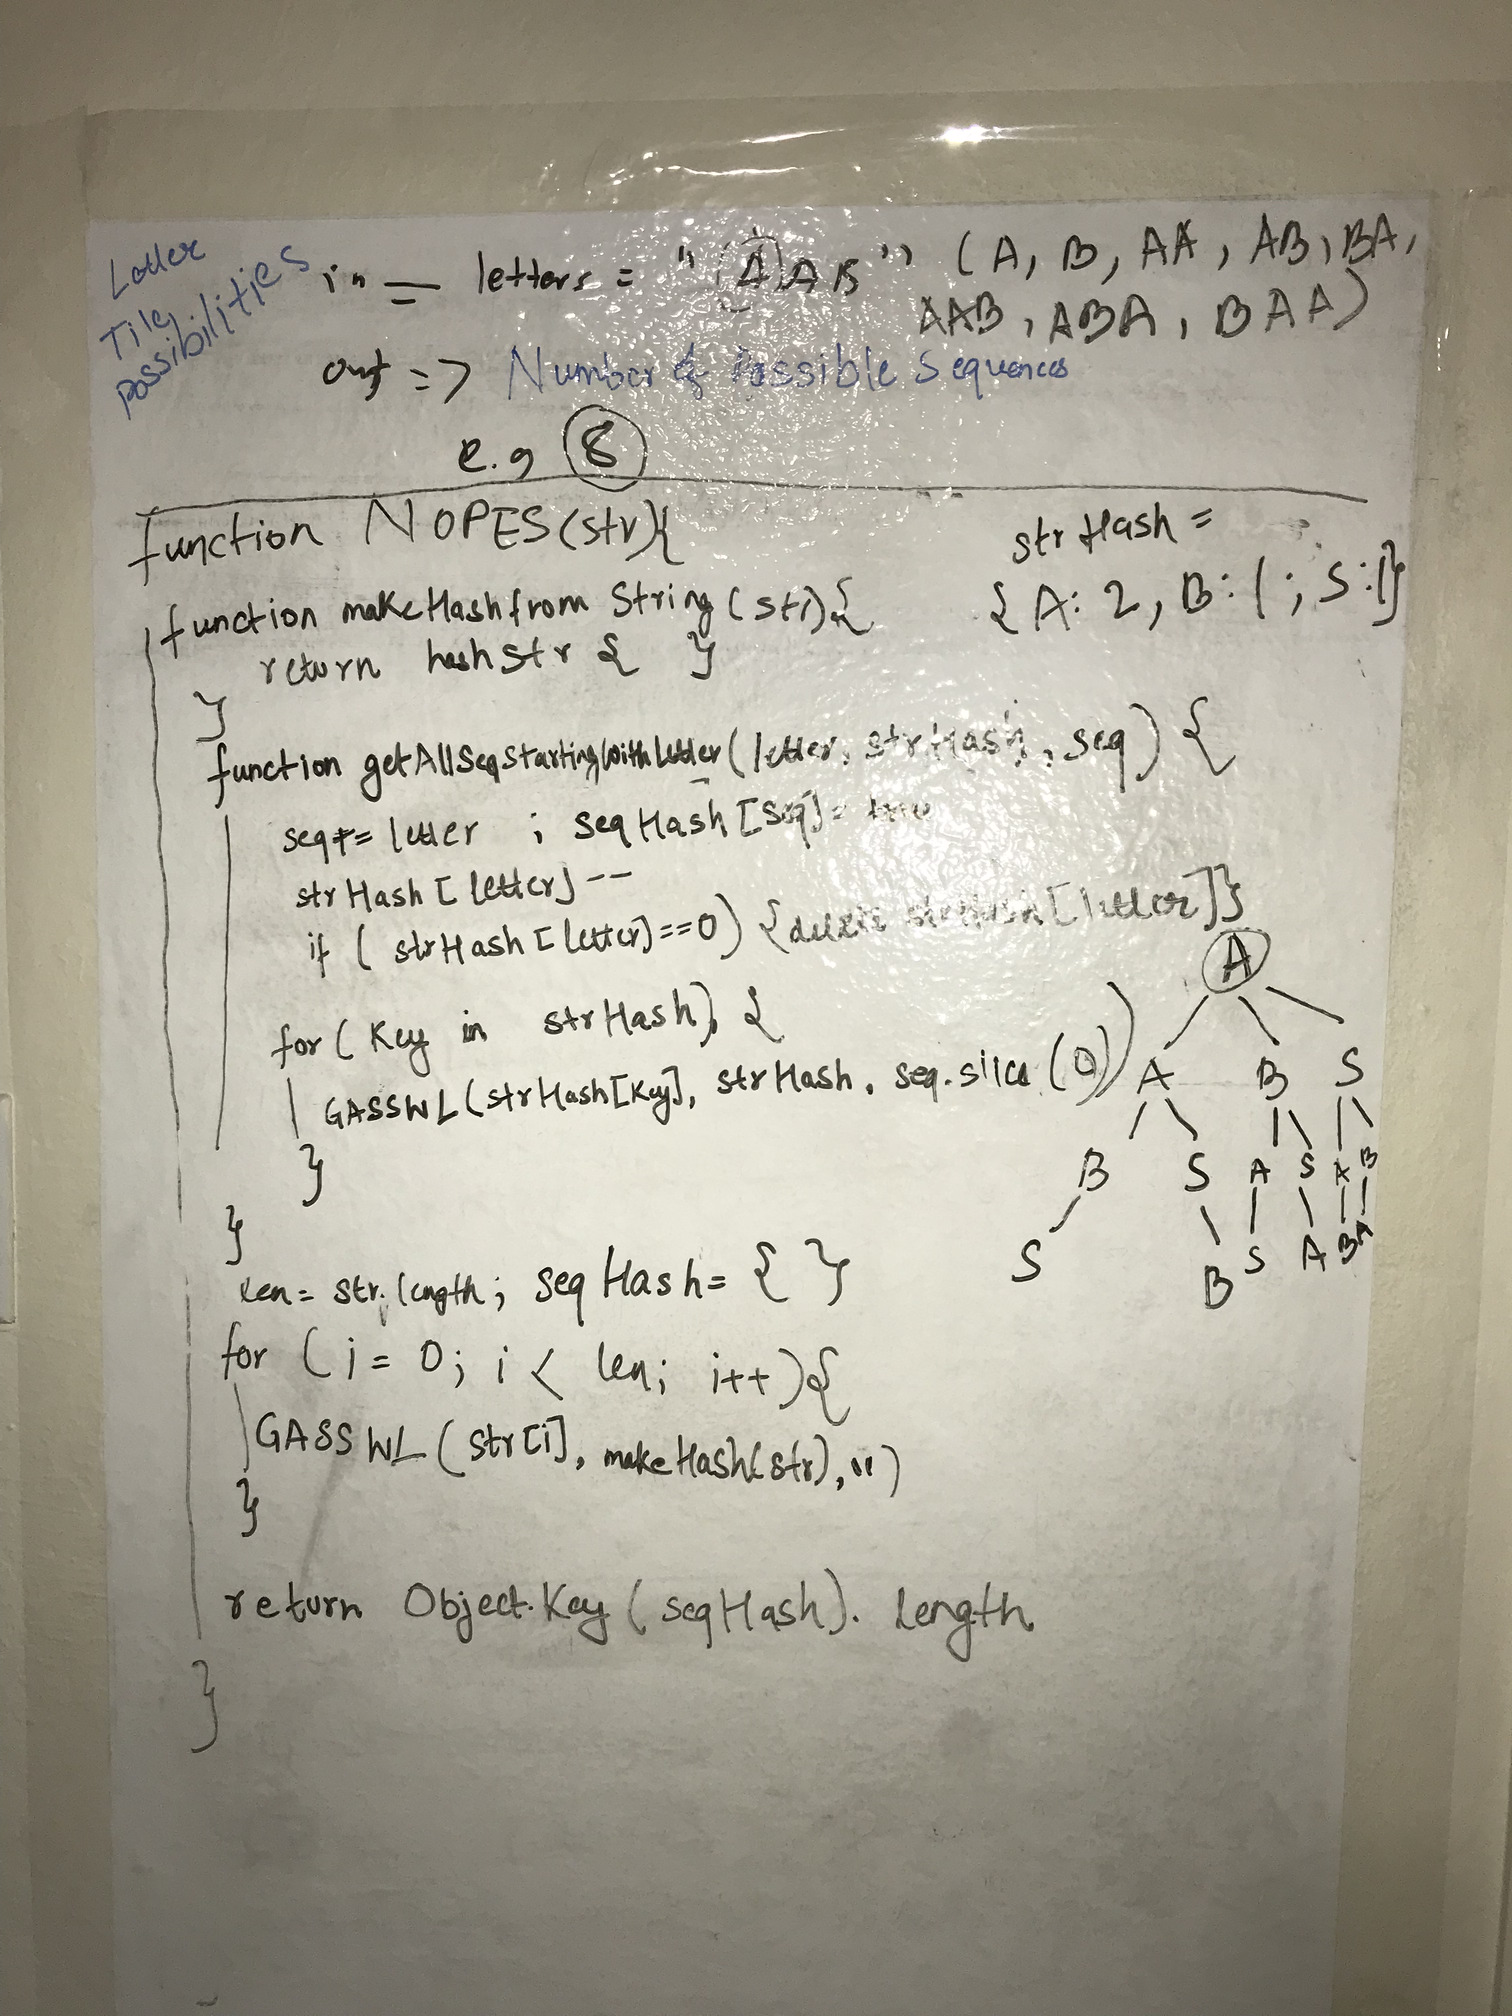 Letter
Tile
possibilities
in = letters = "AAB" (A, B, AA, AB, BA,
AAB, ABA, BAA)
out => Number of Possible Sequences
e.g 8
function NOPES(str){
strHash =
{A: 2, B: 1; S:1}
function makeHashfrom String (str){
return hashstr { }
}
function getAllSeqStartingWithLetter (letter, strHash, seq) {
seq+= letter ; seqHash [seq] = true
strHash [letter] --
if ( strHash [letter]==0) {delete strHash [letter]}
for ( Key in strHash) {
GASSWL (strHash[Key], strHash, seq.slice (0))
}
}
A
A B S
B S A S A B
S B S A B A
len = str.length; seqHash = { }
for (i = 0; i < len; i++){
GASSWL (str[i], makeHash(str), "")
}
return Object.Key (seqHash). length
}